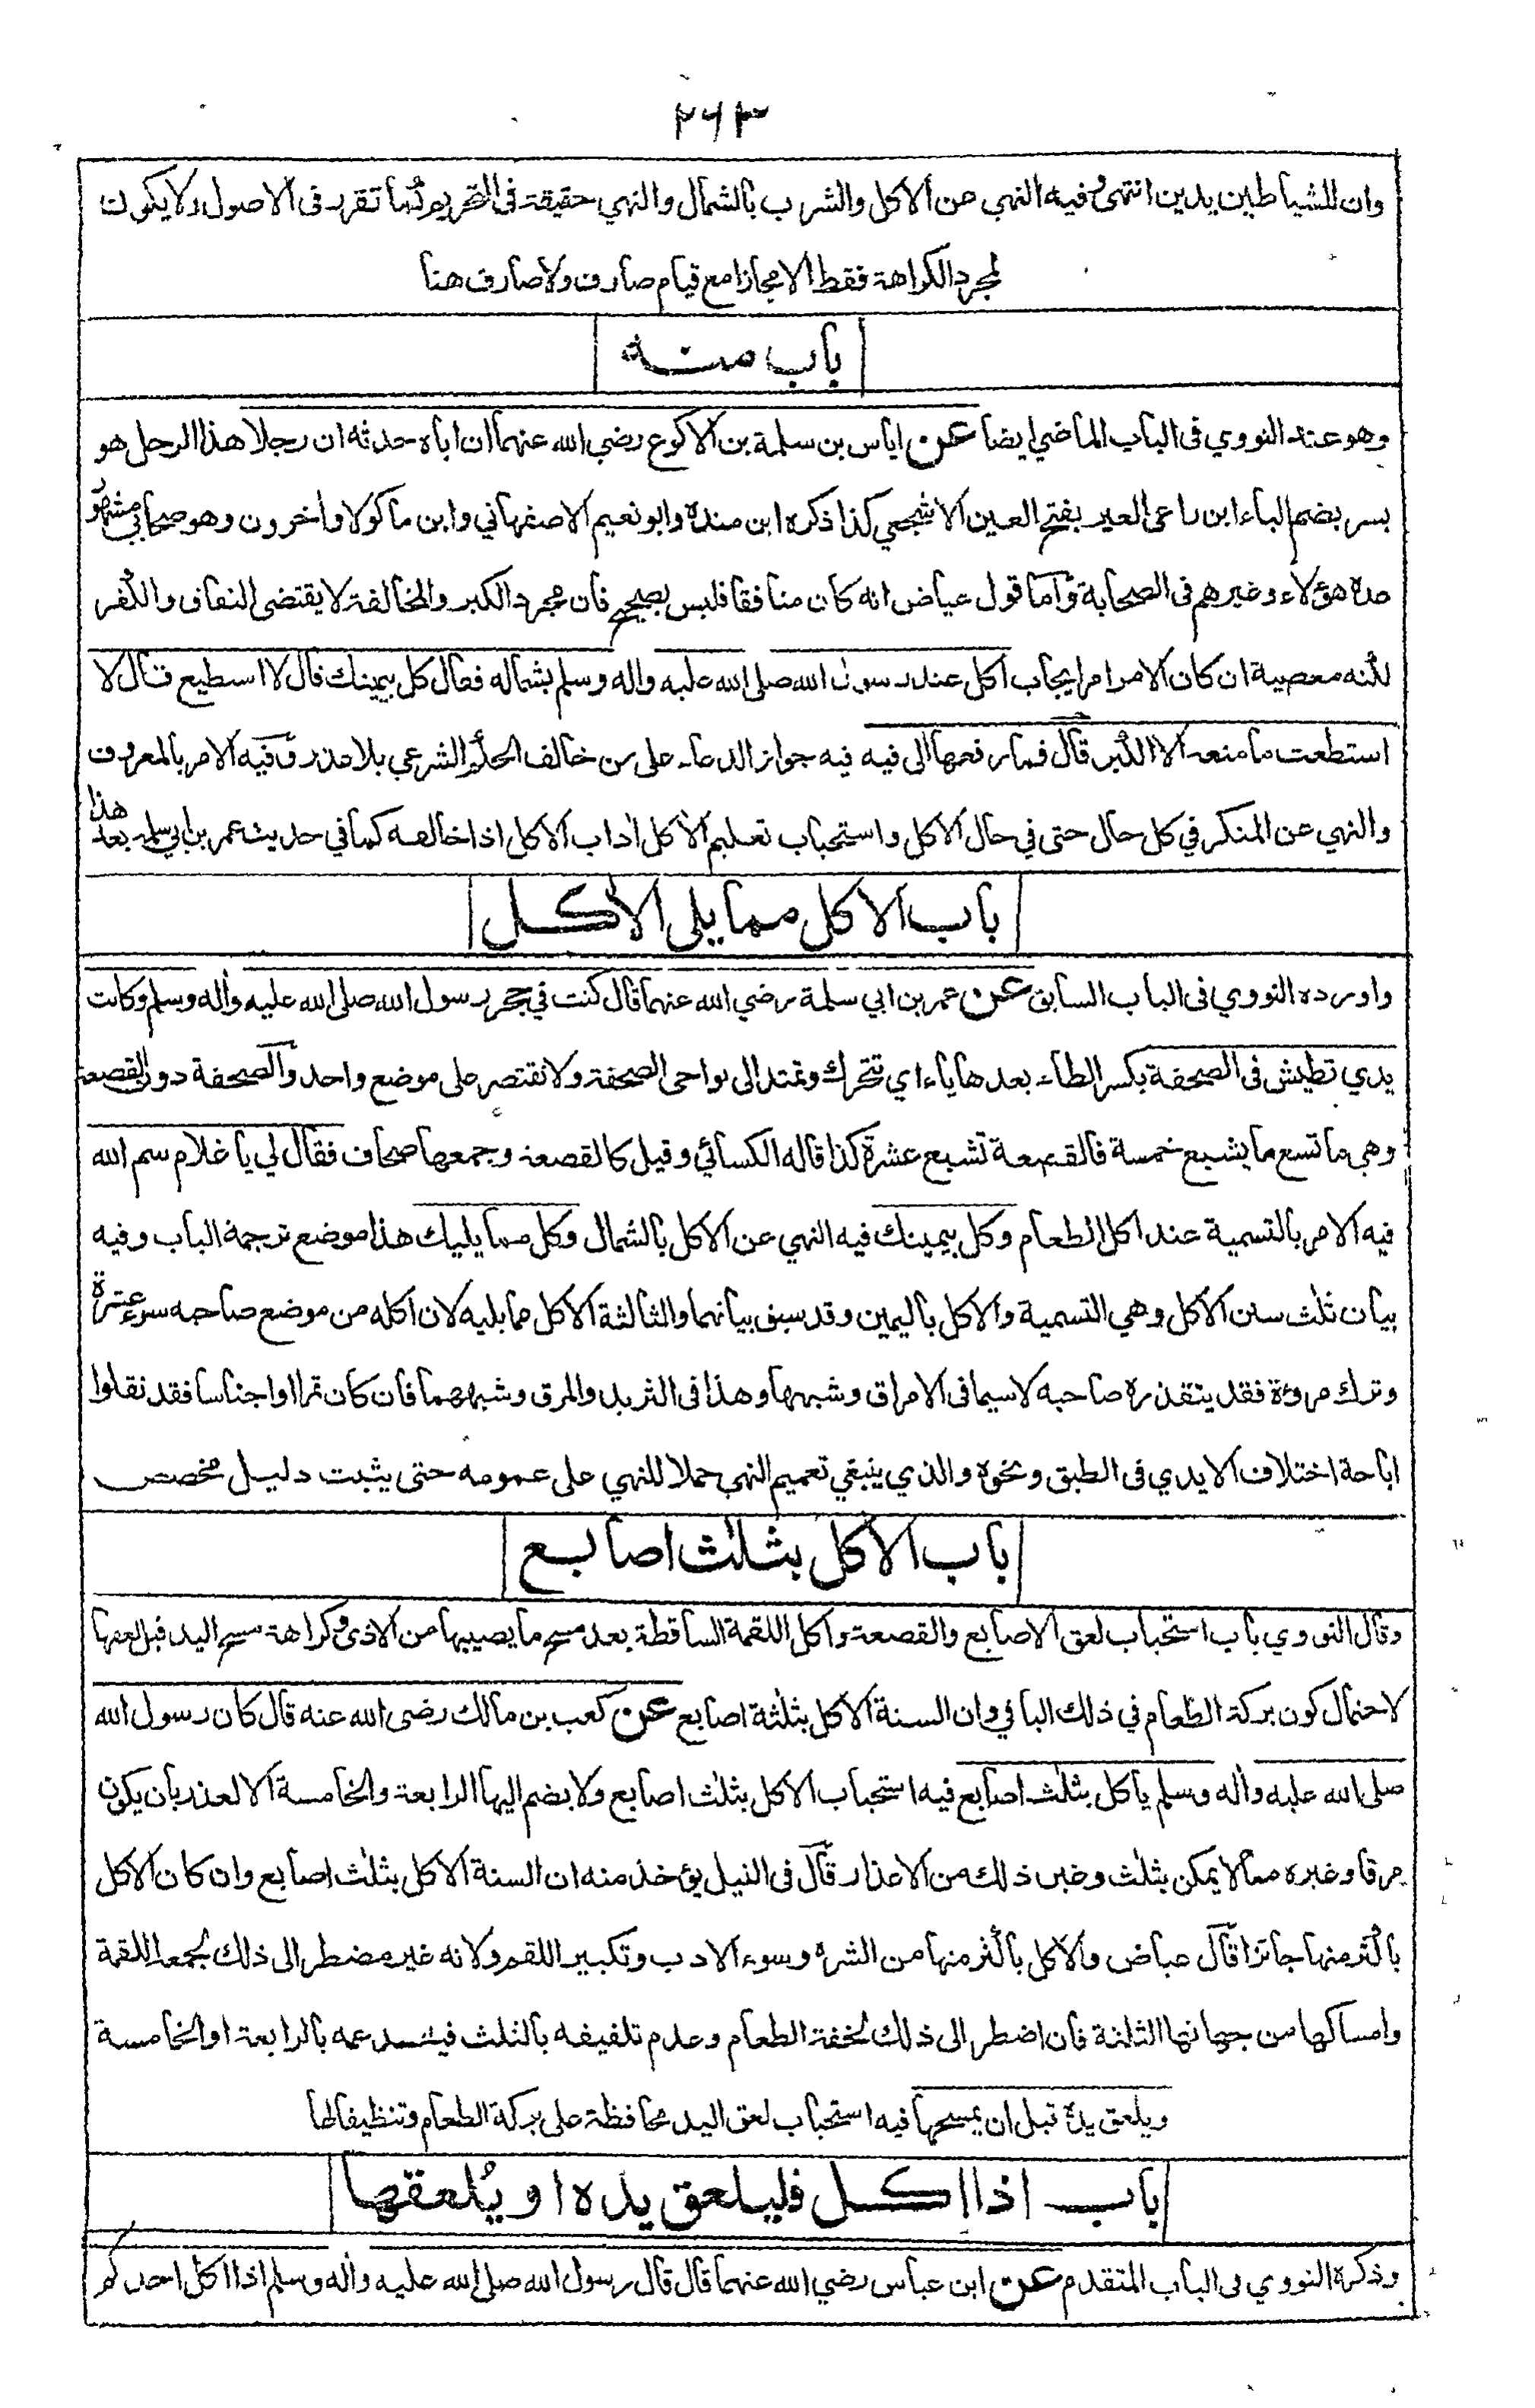 ٢٦٣
وان للشياطين يدين انتهى وفيه النهي عن الاكل والشرب بالشمال والنهي حقيقة في التحريم كما تقرر في الاصول ولا يكون
لمجرد الكراهة فقط الا مجازا مع قيام صارف ولا صارف هنا
باب منه
وهو عند النووي في الباب الماضي ايضا عن اياس بن سلمة بن الاكوع رضي الله عنهما ان اباه حدثه ان رجلا هذا الرجل هو
بسر بضم الباء ابن راعي العير بفتح العين الاشجعي كذا ذكره ابن مندة وابو نعيم الاصفهاني وابن ماكولا واخرون وهو صحابي مشهور
عده هؤلاء وغيرهم في الصحابة واما قول عياض انه كان منافقا فليس بصحيح فان مجرد الكبر والمخالفة لا يقتضى النفاق والكفر
لكنه معصية ان كان الامر امر ايجاب اكل عند رسول الله صلى الله عليه واله وسلم بشماله فقال كل بيمينك قال لا استطيع قال لا
استطعت ما منعه الا الكبر قال فما رفعها الى فيه فيه جواز الدعاء على من خالف الحكم الشرعي بلا عذر وفيه الامر بالمعروف
والنهي عن المنكر في كل حال حتى في حال الاكل واستحباب تعليم الآكل آداب الاكل اذا خالفه كما في حديث عمر بن ابي سلمة بعد هذا
باب الاكل مما يلى الآكل
واورده النووي في الباب السابق عن عمر بن ابي سلمة رضي الله عنهما قال كنت في حجر رسول الله صلى الله عليه واله وسلم وكانت
يدي تطيش في الصحفة بكسر الطاء بعدها ياء اي تتحرك وتمتد الى نواحي الصحفة ولا تقتصر على موضع واحد والصحفة دون القصعة
وهي ما تسع ما يشبع خمسة فالقصعة تشبع عشرة كذا قاله الكسائي وقيل كالقصعة وجمعها صحاف فقال لي يا غلام سم الله
فيه الامر بالتسمية عند اكل الطعام وكل بيمينك فيه النهي عن الاكل بالشمال وكل مما يليك هذا موضع ترجمة الباب وفيه
بيان ثلث سنن الاكل وهي التسمية والاكل باليمين وقد سبق بيانهما والثالثة الاكل مما يليه لان اكله من موضع صاحبه سوء عشرة
وترك مروءة فقد يتقذره صاحبه لاسيما في الامراق وشبهها وهذا في الثريد والمرق وشبههما فان كان تمرا او اجناسا فقد نقلوا
اباحة اختلاف الايدي في الطبق ونحوه والذي ينبغي تعميم النهي حملا للنهي على عمومه حتى يثبت دليل مخصص
باب الاكل بثلث اصابع
وقال النووي باب استحباب لعق الاصابع والقصعة واكل اللقمة الساقطة بعد مسح ما يصيبها من الاذى وكراهة مسح اليد قبل لعقها
لاحتمال كون بركة الطعام في ذلك الباقي وان السنة الاكل بثلثة اصابع عن كعب بن مالك رضي الله عنه قال كان رسول الله
صلى الله عليه واله وسلم ياكل بثلث اصابع فيه استحباب الاكل بثلث اصابع ولا يضم اليها الرابعة والخامسة الا لعذر بان يكون
مرقا وغيره مما لا يمكن بثلث وغير ذلك من الاعذار قال في النيل يؤخذ منه ان السنة الاكل بثلث اصابع وان كان الاكل
باكثر منها جائزا قال عياض والاكل باكثر منها من الشره وسوء الادب وتكبير اللقم ولانه غير مضطر الى ذلك لجمع اللقمة
وامساكها من جهاتها الثلثة فان اضطر الى ذلك لخفة الطعام وعدم تلفيفه بالثلث فيدعمه بالرابعة او الخامسة
ويلعق يده قبل ان يمسحها فيه استحباب لعق اليد محافظة على بركة الطعام وتنظيفا لها
باب اذا اكل فليلعق يده او يُلعقها
وذكره النووي في الباب المتقدم عن ابن عباس رضي الله عنهما قال قال رسول الله صلى الله عليه واله وسلم اذا اكل احدكم